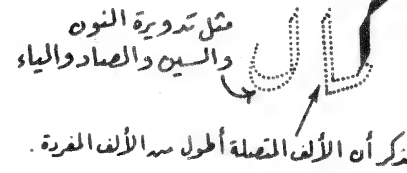 مثل تدويرة النون
والسين والصاد والياء
ذكر أن الألف المتصلة أطول من الألف المفردة .